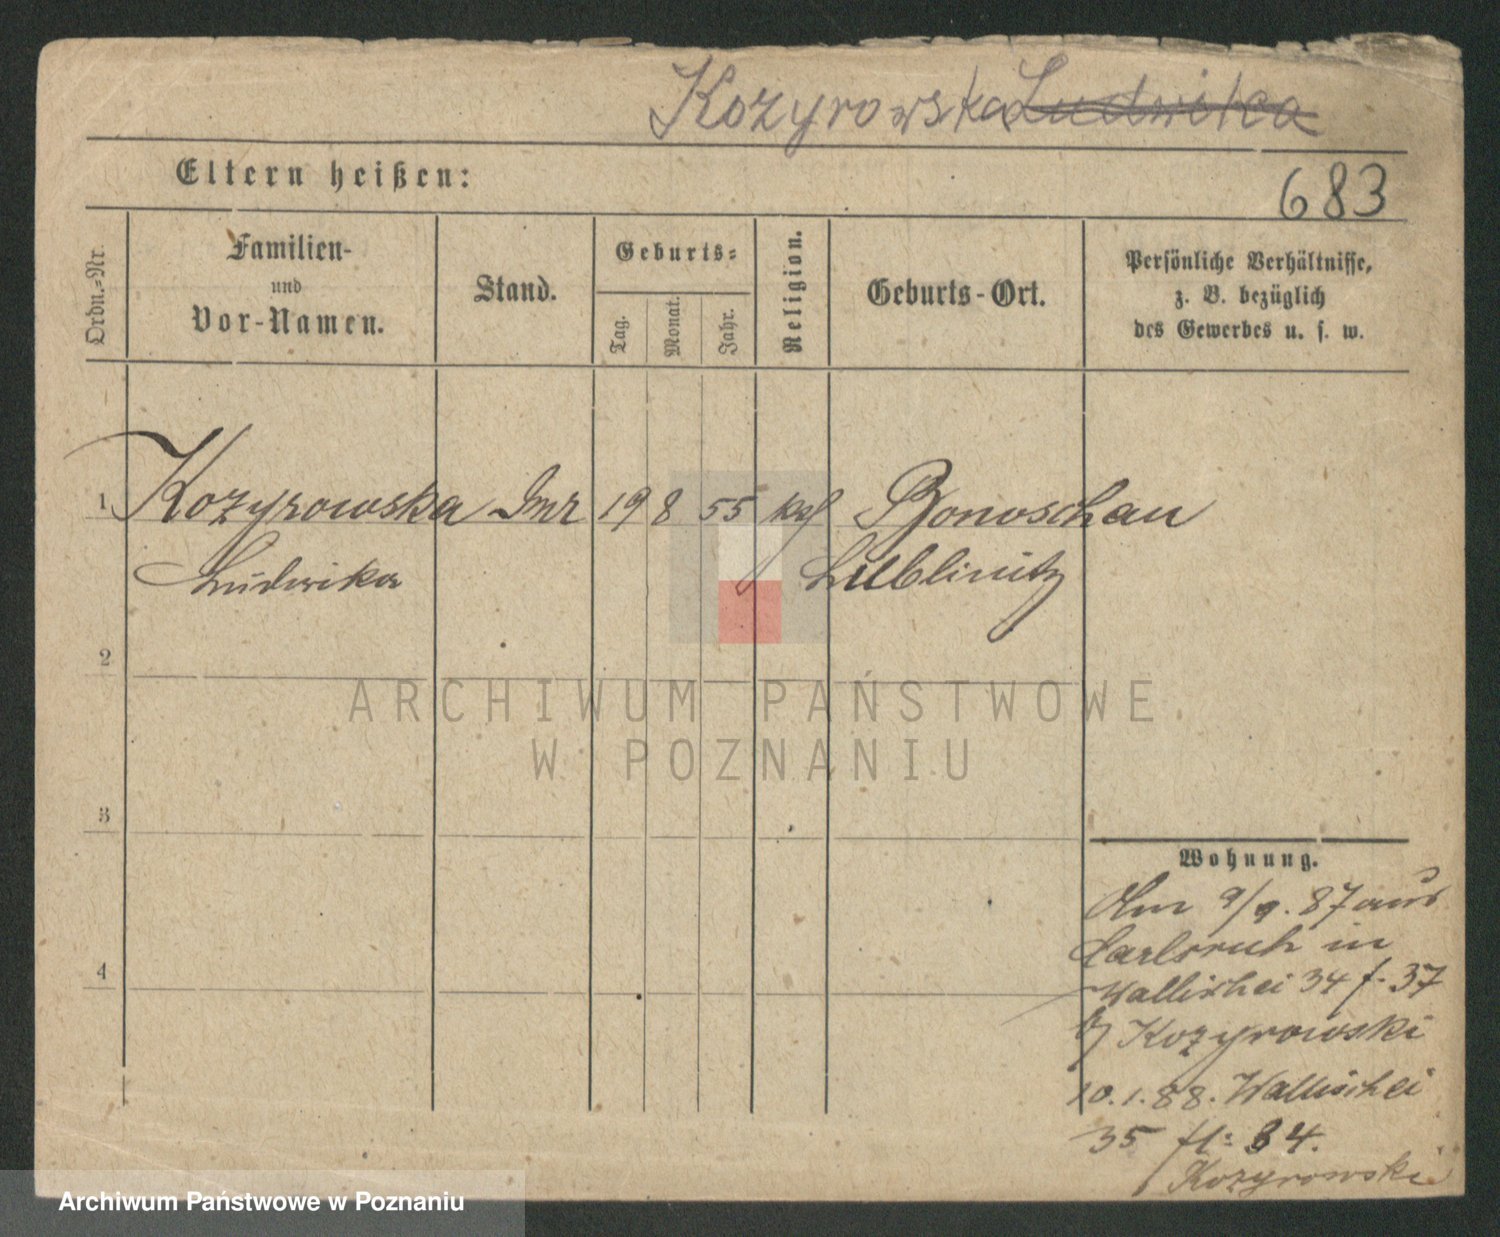 Kozyrowska Ludwika
Eltern heißen:
683
Ordn.-Nr.
Familien-
und
Vor-Namen.
Stand.
Geburts-
Tag.
Monat.
Jahr.
Religion.
Geburts-Ort.
Persönliche Verhältnisse,
z. B. bezüglich
des Gewerbes u. s. w.
1 Kozyrowska 19 8 55 Bonoschau
Ludwika Lublinitz
2
ARCHIWUM PAŃSTWOWE
W POZNANIU
3
Wohnung.
Am 9/9. 87 aus
Carlsruh in
Wallischei 34 f. 37
Kozyrowski
10.1.88. Wallischei
35 34.
Kozyrowski
4
Archiwum Państwowe w Poznaniu